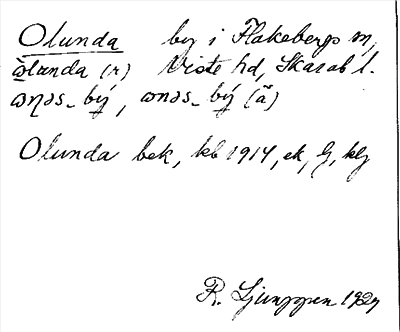 Olunda by i Flakebergs sn,
òlunda (r) Viste hd, Skarab l.
ωn̩əs- bý, ωnəs- bý (ã)
Olunda bek, kb 1914, ek, lj, klj
R. Ljunggren 1927